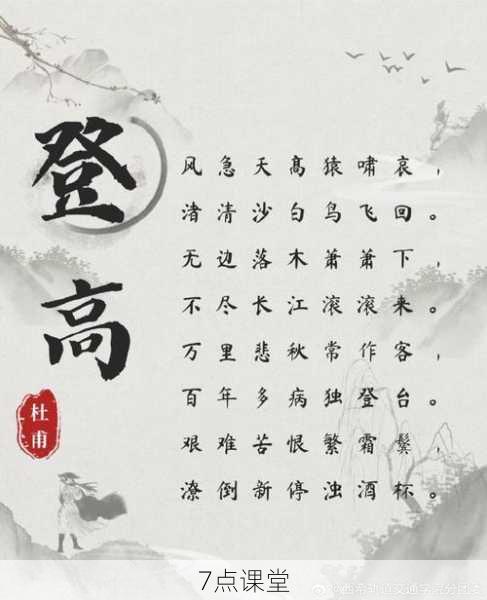 登高
杜甫
风急天高猿啸哀，
渚清沙白鸟飞回。
无边落木萧萧下，
不尽长江滚滚来。
万里悲秋常作客，
百年多病独登台。
艰难苦恨繁霜鬓，
潦倒新停浊酒杯。
7点课堂